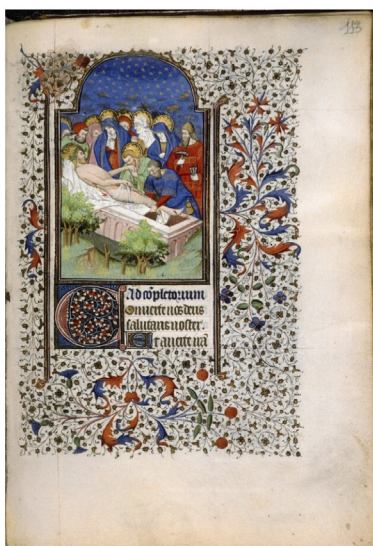 113
Ad cõpletorium
Conuerte nos deus
salutaris noster.
Et auerte irã